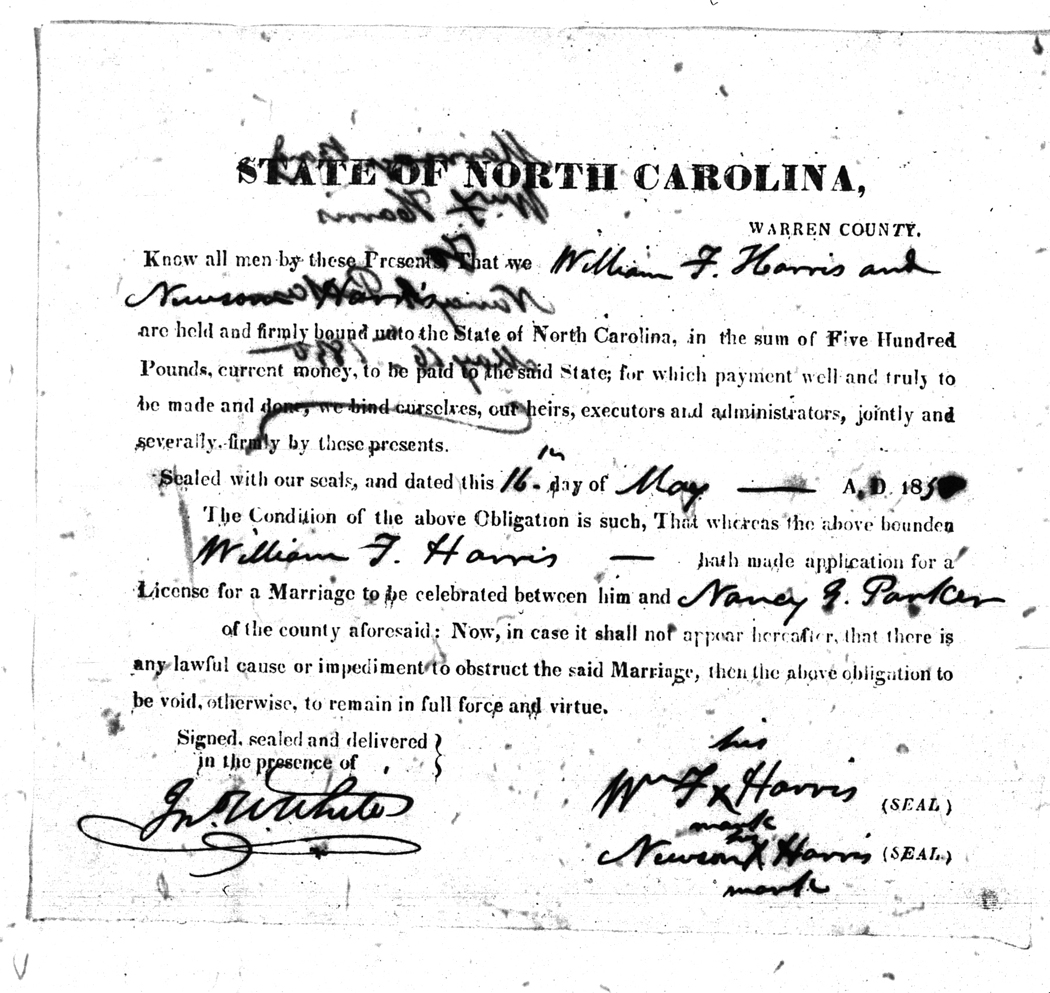 STATE OF NORTH CAROLINA,
WARREN COUNTY.
Know all men by these Presents, That we William F. Harris and
Newsom Harris
are held and firmly bound unto the State of North Carolina, in the sum of Five Hundred
Pounds, current money, to be paid to the said State; for which payment well and truly to
be made and done, we bind ourselves, our heirs, executors and administrators, jointly and
severally, firmly by these presents.
Sealed with our seals, and dated this 16th day of May — A. D. 185
The Condition of the above Obligation is such, That whereas the above bounden
William F. Harris — hath made application for a
License for a Marriage to be celebrated between him and Nancy G. Parker
of the county aforesaid: Now, in case it shall not appear hereafter, that there is
any lawful cause or impediment to obstruct the said Marriage, then the above obligation to
be void, otherwise, to remain in full force and virtue.
Signed, sealed and delivered
in the presence of
Jno. W. White
his
Wm F x Harris (SEAL)
mark
his
Newsom X Harris (SEAL)
mark